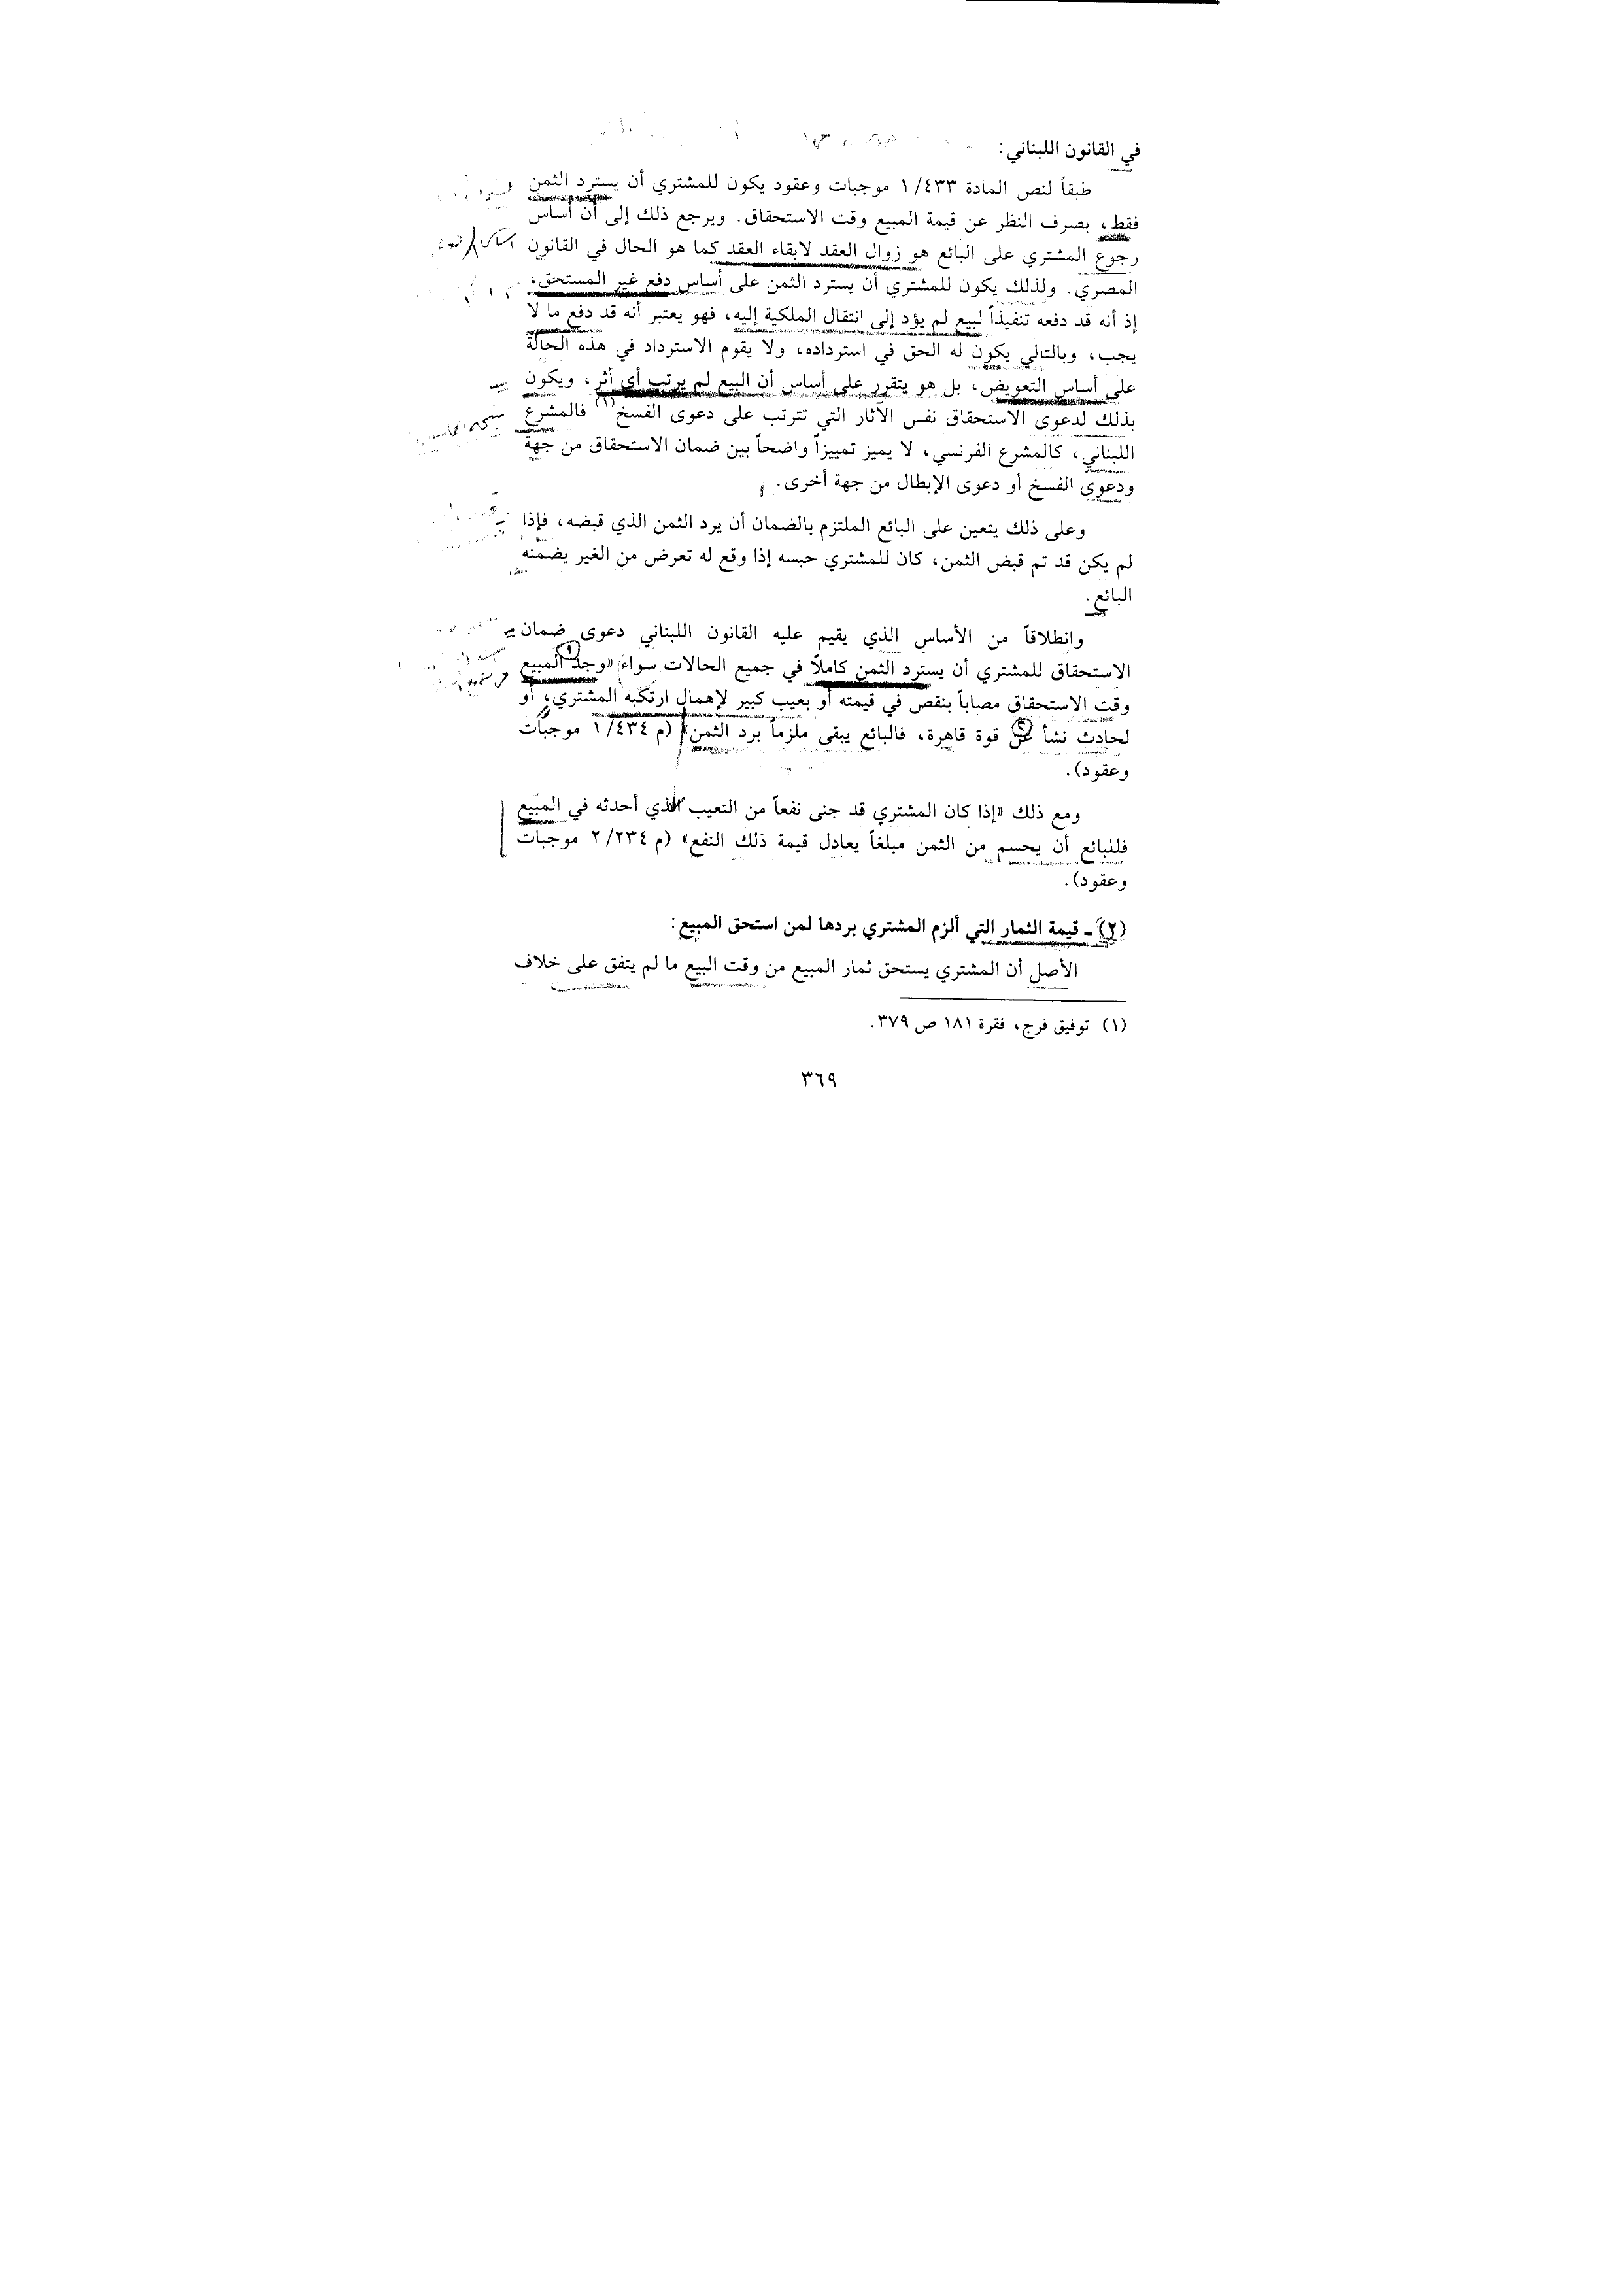 في القانون اللبناني:
طبقاً لنص المادة ٤٣٣/ ١ موجبات وعقود يكون للمشتري أن يسترد الثمن
فقط، بصرف النظر عن قيمة المبيع وقت الاستحقاق. ويرجع ذلك إلى أن أساس
رجوع المشتري على البائع هو زوال العقد لابقاء العقد كما هو الحال في القانون
المصري. ولذلك يكون للمشتري أن يسترد الثمن على أساس دفع غير المستحق،
إذ أنه قد دفعه تنفيذاً لبيع لم يؤد إلى انتقال الملكية إليه، فهو يعتبر أنه قد دفع ما لا
يجب، وبالتالي يكون له الحق في استرداده، ولا يقوم الاسترداد في هذه الحالة
على أساس التعويض، بل هو يتقرر على أساس أن البيع لم يرتب أي أثر، ويكون
بذلك لدعوى الاستحقاق نفس الآثار التي تترتب على دعوى الفسخ(١) فالمشرع
اللبناني، كالمشرع الفرنسي، لا يميز تمييزاً واضحاً بين ضمان الاستحقاق من جهة
ودعوى الفسخ أو دعوى الإبطال من جهة أخرى.
وعلى ذلك يتعين على البائع الملتزم بالضمان أن يرد الثمن الذي قبضه، فإذا
لم يكن قد تم قبض الثمن، كان للمشتري حبسه إذا وقع له تعرض من الغير يضمنه
البائع.
وانطلاقاً من الأساس الذي يقيم عليه القانون اللبناني دعوى ضمان
الاستحقاق للمشتري أن يسترد الثمن كاملاً في جميع الحالات سواء «وجد المبيع
وقت الاستحقاق مصاباً بنقص في قيمته أو بعيب كبير لإهمال ارتكبه المشتري، أو
لحادث نشأ عن قوة قاهرة، فالبائع يبقى ملزماً برد الثمن» (م ٤٣٤/ ١ موجبات
وعقود).
ومع ذلك «إذا كان المشتري قد جنى نفعاً من التعيب الذي أحدثه في المبيع
فللبائع أن يحسم من الثمن مبلغاً يعادل قيمة ذلك النفع» (م ٢٣٤/ ٢ موجبات
وعقود).
(٢) ـ قيمة الثمار التي ألزم المشتري بردها لمن استحق المبيع:
الأصل أن المشتري يستحق ثمار المبيع من وقت البيع ما لم يتفق على خلاف
(١) توفيق فرج، فقرة ١٨١ ص ٣٧٩.
٣٦٩